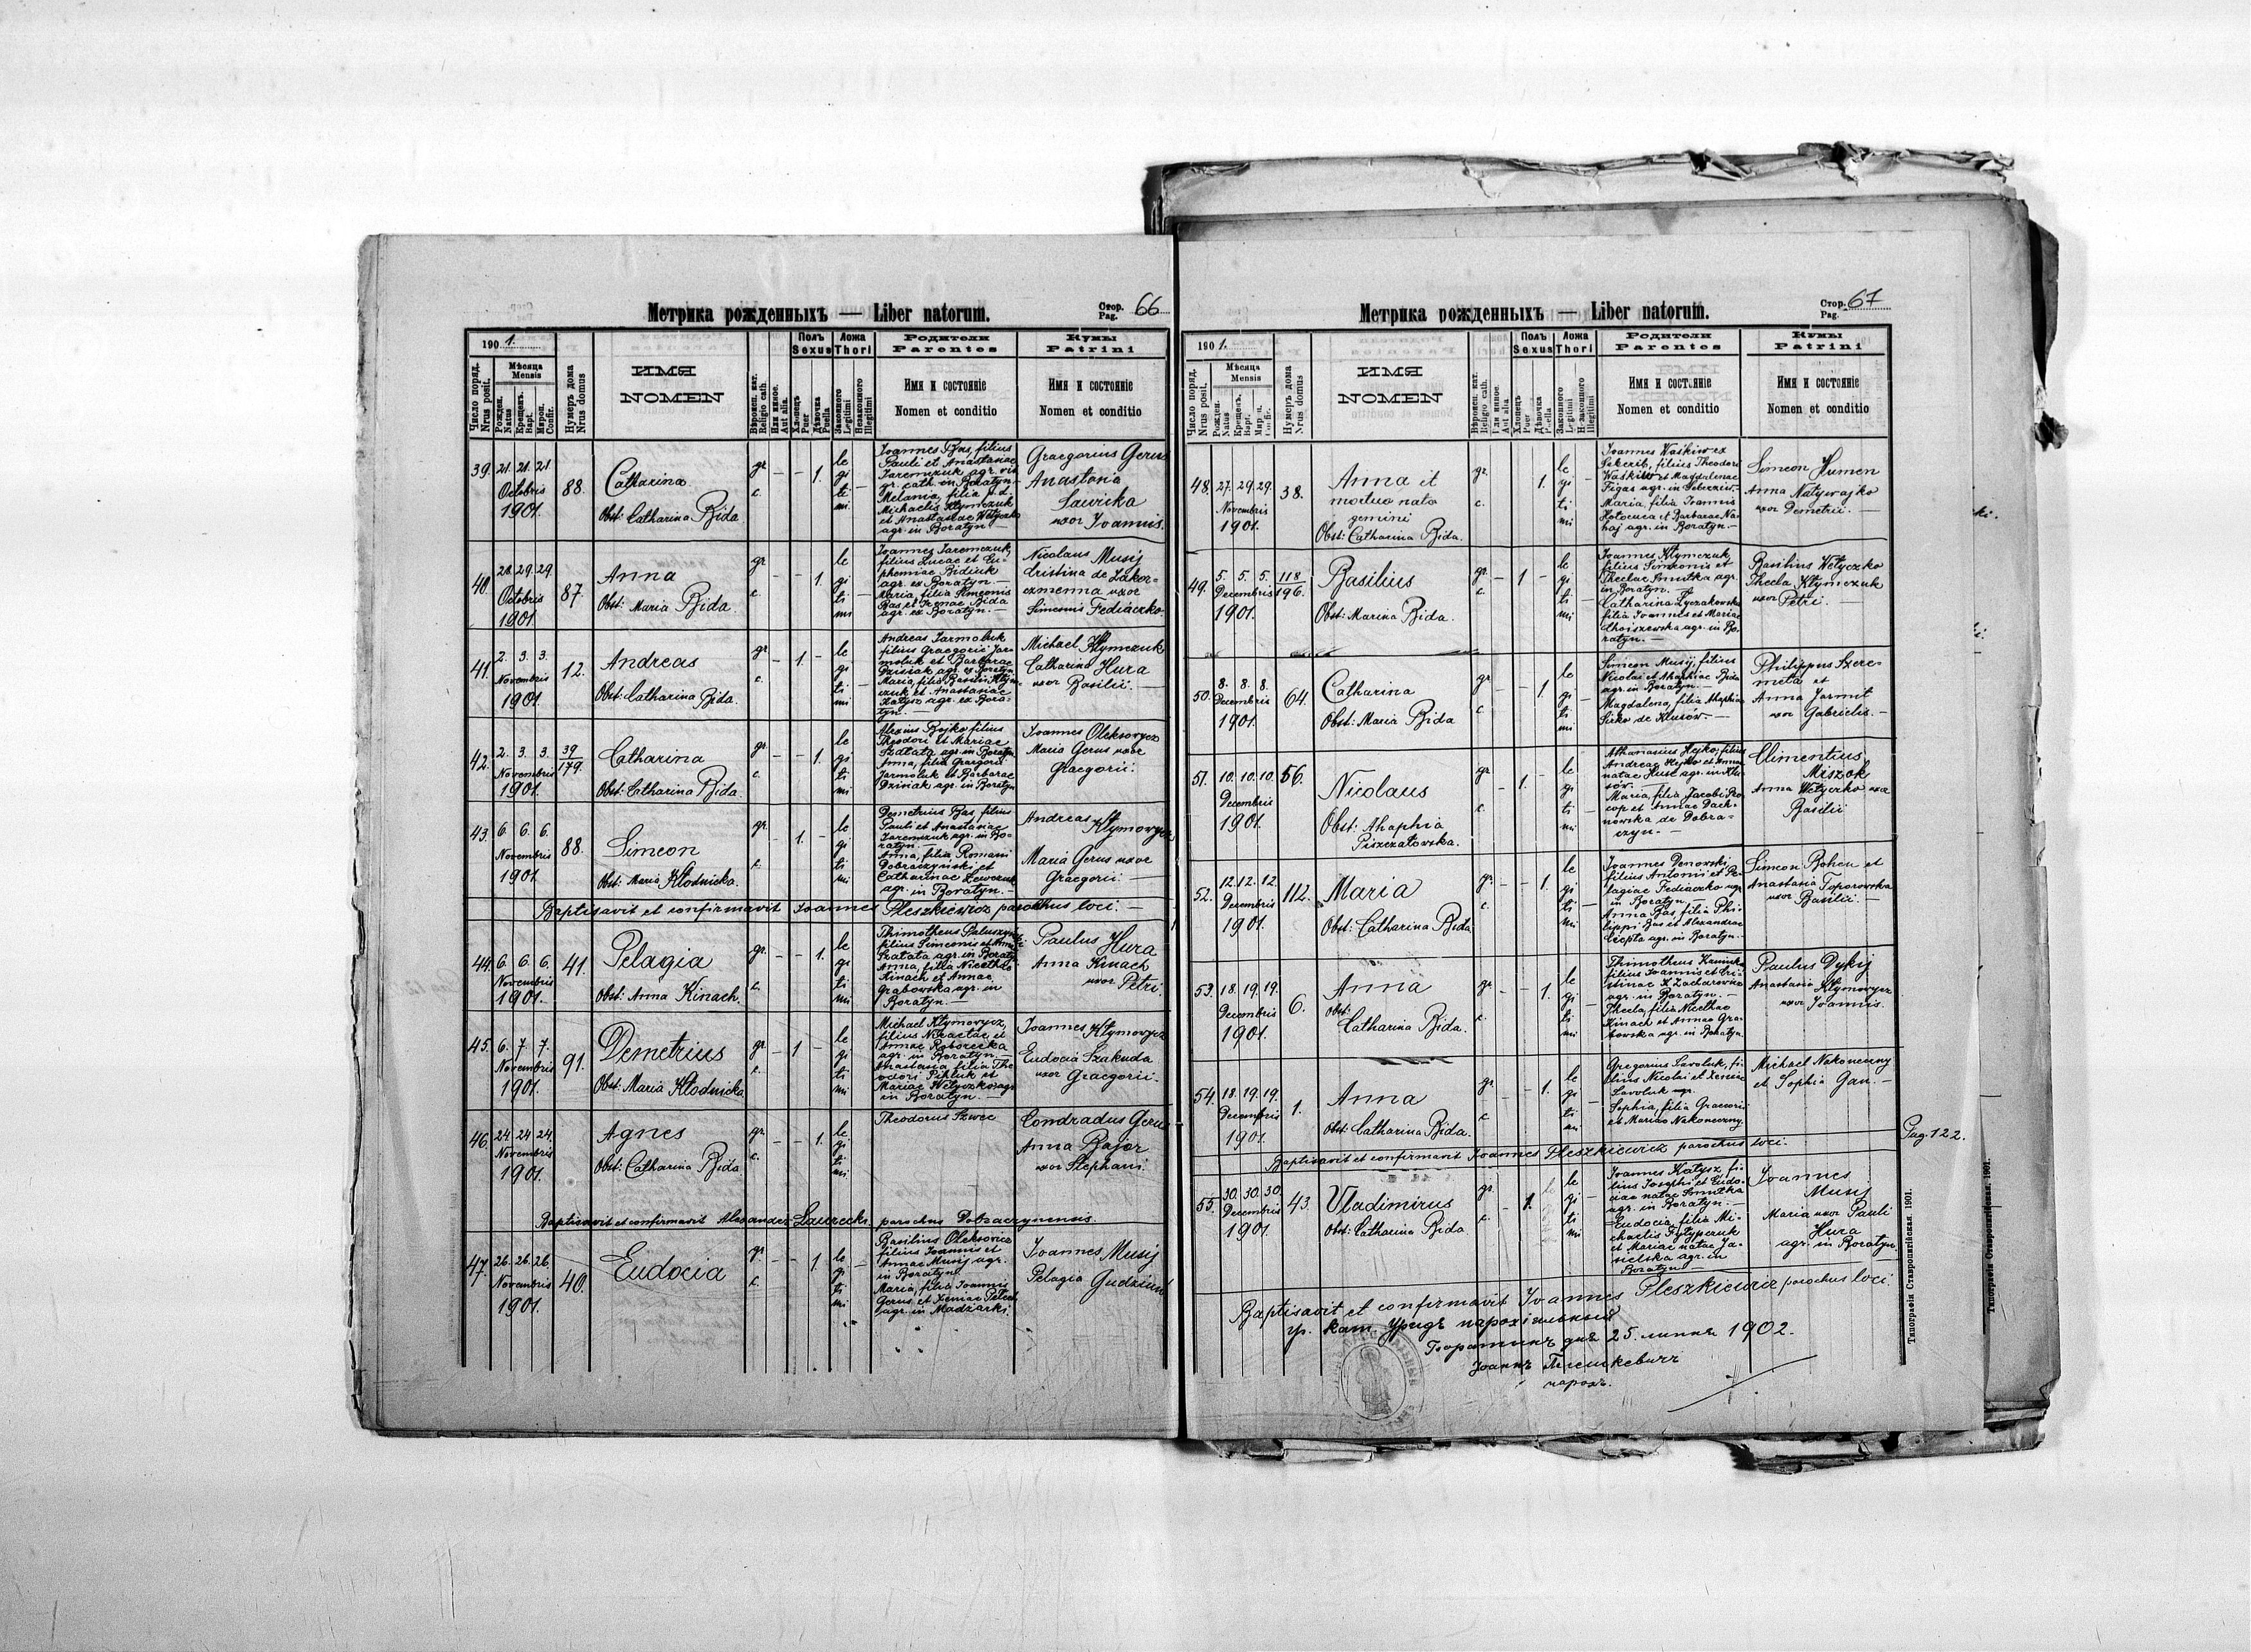 Метрика рожденныхъ — Liber natorum.
Стор. Pag. 66
1901.
Число поряд. Nrus posit.
Мѣсяца Mensis
Рожден. Natus
Крещенъ. Bapt.
Мѵроп. Confir.
Нумеръ дома Nrus domus
ИМЯ
NOMEN
Вѣроисп. кат. Religio cath.
Или иное. Aut alia.
Полъ Sexus
Хлопецъ Puer
Дѣвочка Puella
Ложа Thori
Законного Legitimi
Незаконного Illegitimi
Родители
Parentes
Имя и состоянie
Nomen et conditio
Кумы
Patrini
Имя и состоянie
Nomen et conditio
39. 21. 21. 21. Octobris 1901. 88.
Catharina
Obst: Catharina Bida
gr. c. – – 1. legitimi –
Joannes Bas, filius
Pauli et Anastasiae
Jaremczuk agr. rit.
gr. cath. in Boratyn.
Melania, filia p. d.
Michaelis Kłymczuk
et Anastasiae Wetyczko
agr. in Boratyn.
Graegorius Gerus
Anastasia
Sawicka
uxor Joannis.
40. 28. 29. 29. Octobris 1901. 87
Anna
Obst: Maria Bida.
gr. c. – – 1. legitimi –
Joannes Jaremczuk,
filius Lucae et Eu-
phemiae Bidiuk
agr. ex Boratyn.
Maria, filia Simeonis
Bas et Irenae Bida
agr. ex Boratyn.
Nicolaus Musij
Cristina de Zakor-
czmenna uxor
Simeonis Fediaczko
41. 2. 3. 3. Novembris 1901. 12.
Andreas
Obst: Catharina Bida.
gr. c. – 1. – legitimi –
Andreas Jarmoluk
filius Graegorii Jar-
moluk et Barbarae
Dziniak agr. ex Boratyn
Maria, filia Basilii Kłym-
czuk et Anastasiae
Katysz agr. ex Bora-
tyn.
Michael Kłymczuk
Catharina Hura
uxor Basilii. —
42. 2. 3. 3. Novembris 1901. 39/179.
Catharina
Obst: Catharina Bida.
gr. c. – – 1. legitimi –
Alexius Bojko, filius
Theodori et Mariae
Szałata agr. in Boratyn
Anna, filia Graegorii
Jarmoluk et Barbarae
Dziniak agr. in Boratyn
Joannes Oleksowycz
Maria Gerus uxor
Graegorii.
43. 6. 6. 6. Novembris 1901 88.
Simeon
Obst: Maria Kłodnicka.
gr. c. – 1. – legitimi –
Demetrius Bas, filius
Pauli et Anastasiae
Jaremczuk agr. in Bo-
ratyn.
Anna, filia Romani
Dobraczyński et
Catharinae Lewczuk
agr. in Boratyn. –
Andreas Kłymowycz
Maria Gerus uxor
Graegorii. —
Baptisavit et confirmavit Joannes Pleszkiewicz parochus loci. —
44. 6. 6. 6. Novembris 1901. 41.
Pelagia
Obst: Anna Kinach.
gr. c. – – 1. legitimi
filius Simeonis et Annae
Szałata agr. in Boratyn
Anna, filia Nicethae
Kinach et Annae
Grabowska agr. in
Boratyn. —
Paulus Hura
Anna Kinach
uxor Petri.
45. 6. 7. 7. Novembris 1901. 91.
Demetrius
Obst: Maria Kłodnicka
gr. c. – 1 – legitimi –
Michael Kłymowycz,
agr. in Boratyn. –
Anastasia filia The-
odori Pihluk et
Mariae Wetyczko agr.
in Boratyn. —
Joannes Kłymowycz
Eudocia Szakuda
uxor Graegorii.
46. 24 24 24. Novembris 1901.
Agnes
Obst: Catharina Bida
gr. c. – – 1. legitimi
Theodorus Szwec
Condradus Gerus
Anna Bajor
uxor Stephani.
Baptisavit et confirmavit Alexander Laurecki parochus Dobraczynensis.
47. 26. 26. 26. Novembris 1901. 40.
Eudocia
gr. c. – – 1. legitimi –
Basilius Oleksowicz
filius Joannis et
Annae Musij agr.
in Boratyn
Maria, filia Joannis
Gerus et Xeniae Pełech
agr. in Madziarki
Joannes Musij
Pelagia Gudzium
Метрика рожденныхъ — Liber natorum.
Стор. Pag. 67
1901.
Число поряд. Nrus posit.
Мѣсяца Mensis
Рожден. Natus
Крещенъ. Bapt.
Мѵроп. Confir.
Нумеръ дома Nrus domus
ИМЯ
NOMEN
Вѣроисп. кат. Religio cath.
Или иное. Aut alia.
Полъ Sexus
Хлопецъ Puer
Дѣвочка Puella
Ложа Thori
Законного Legitimi
Незаконного Illegitimi
Родители
Parentes
Имя и состоянie
Nomen et conditio
Кумы
Patrini
Имя и состоянie
Nomen et conditio
48. 27. 29. 29. Novembris 1901. 38.
Anna et
mortuo nato
gemini
Obst: Catharina Bida.
gr. c. 1. legitimi
Joannes Waśkiw ex
filius Theodori
Waśkiw et Magdalenae
Figas agr. in
Maria, filia Joannis
Hołowca et Barbarae Na-
haj agr. in Boratyn.—
Simeon Humen
Anna Natywajko
uxor Demetrii. —
49. 5. 5. 5. Decembris 1901. 118/196.
Basilius
Obst: Marina Bida.
gr. c. – 1 – legitimi
Joannes Kłymczuk,
filius Simeonis et
Theclae Smutka agr.
in Boratyn. —
Catharina Łyczakowska
filia Joannis et Maria
Choiszewska agr. in Bo-
ratyn. —
Basilius Wetyczko
Thecla Kłymczuk
uxor Petri. —
50. 8. 8. 8. Decembris 1901. 64.
Catharina
Obst: Maria Bida
gr. c. – – 1. legitimi
Simeon Musij, filius
Nicolai et Ahaphiae Bida
agr. in Boratyn. —
Magdalena, filia Ahaphiae
Sirko de Klusów. —
Philippus Szere-
meta et
Anna Jarmit
uxor Gabrielis. —
51. 10. 10. 10. Decembris 1901. 56.
Nicolaus
Obst: Ahaphia
Piszczatowska.
gr. c. – 1. – legitimi
Athanasius Hejko, filius
Andreae Hejko et Annae
natae Hust agr. in Klu-
sów. —
Maria, filia Jacobi Pro-
cop et Annae Dach-
nowska de Dobra-
czyn. —
Climentius
Miszok
Anna Wetyczko uxor
Basilii
52. 12. 12. 12. Decembris 1901. 112.
Maria
Obst: Catharina Bida
gr. c. – – 1. legitimi
Joannes Denowski,
filius Antonii et Pe-
lagiae Fediaczko agr.
in Boratyn. —
Anna Bas, filia Phi-
lippi Bas et Alexandrae
Ciepła agr. in Boratyn. —
Simeon Bohen et
Anastasia Toporowska
uxor Basilii. —
53. 18. 19. 19. Decembris 1901. 6.
Anna
Obst:
Catharina Bida.
gr. c. – – 1. legitimi
Thimotheus Kaminka
filius Joannis et Cri-
stinae
agr. in Boratyn. —
Thecla, filia Nicethae
Kinach et Annae Gra-
bowska agr. in Boratyn.
Paulus Dykij
Anastasia Kłymowycz
uxor Joannis.
54. 18. 19. 19. Decembris 1901. 1.
Anna
Obst: Catharina Bida.
gr. c. – – 1. legitimi
Gregorius Savoluk, fi-
lius Nicolai et Xeniae
Savoluk agr.
Sophia, filia Graegorii
et Mariae Nakoneczny.
Michael Nakoneczny
et Sophia Gan. —
Pag. 122.
Baptisavit et confirmavit Joannes Pleszkiewicz parochus loci.
55. 30. 30. 30. Decembris 1901. 43.
Vladimirus
Obst: Catharina Bida
gr. c. – 1. legitimi
Joannes Katysz, fi-
lius Josephi et Eudo-
ciae natae Smutka
agr. in Boratyn. —
Eudocia, filia Mi-
chaelis Fyłypczuk
et Mariae natae Ja-
sielska agr. in
Boratyn —
Joannes
Musij
Maria uxor Pauli
Hura
agr. in Boratyn.
Baptisavit et confirmavit Joannes Pleszkiewicz parochus loci
гр. кат. Урядъ парохіяльный
Боратинъ дня 25. липня 1902.
Іоаннъ Плешкевичъ
парохъ.
Типографія Ставропигійская. 1901.
Типографія Ставропигійская. 1901.